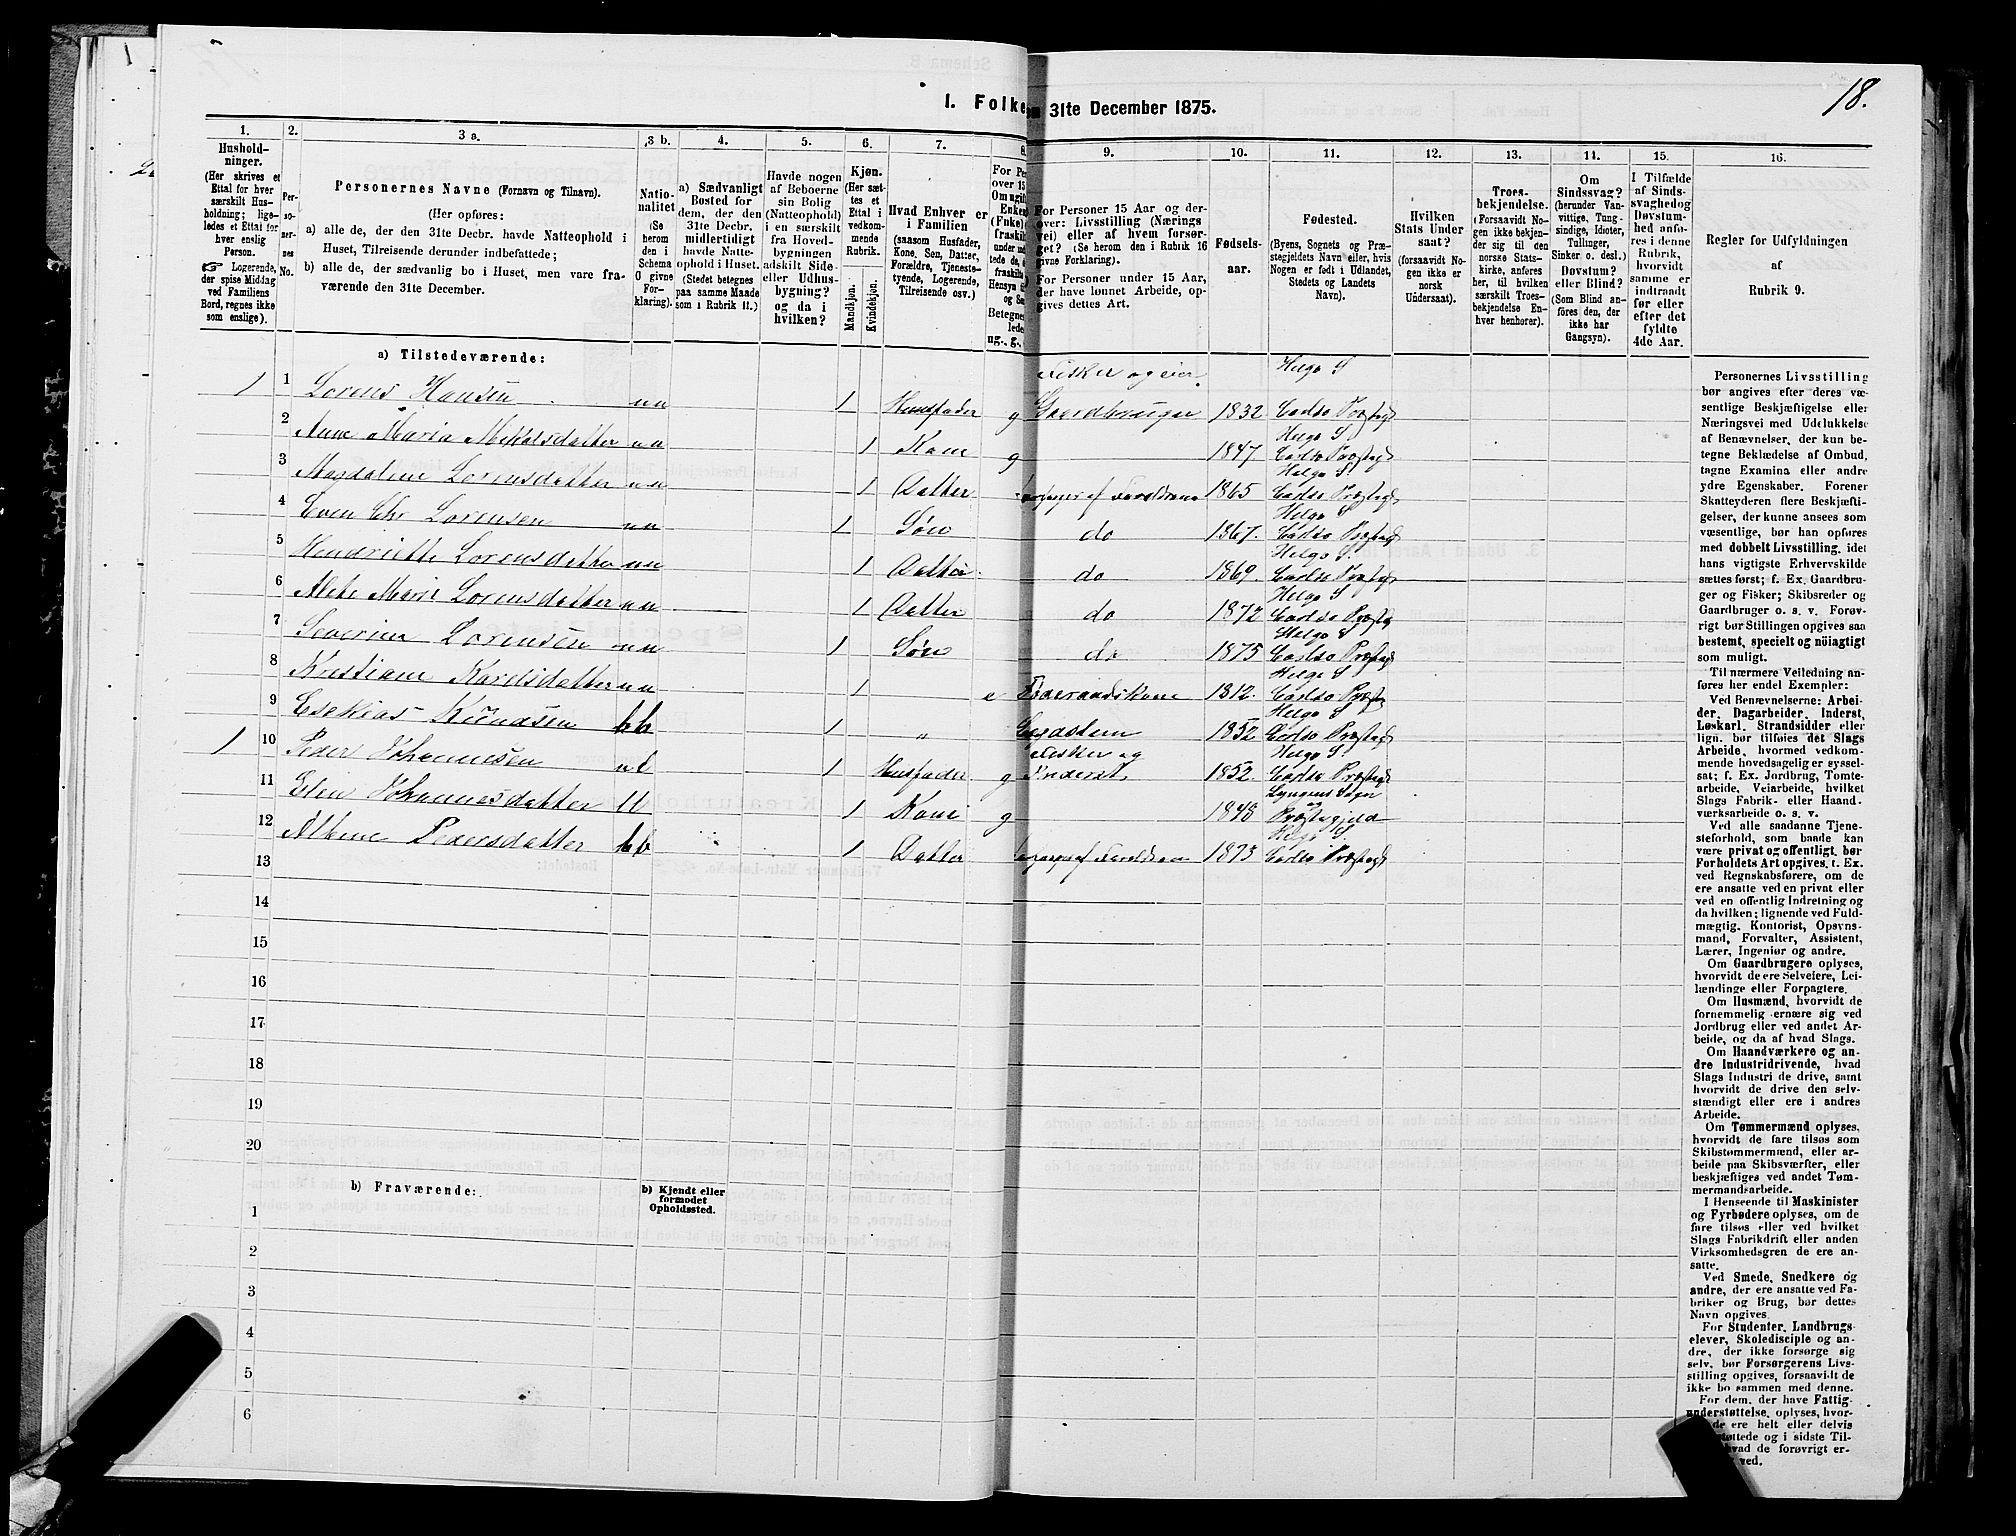 18.
I. Folke
m 31te December 1875.
1.
Husholdninger.
(Her skrives et
Ettal for hver
særskilt Husholdning; ligeledes et Ettal for
hver enslig
Person.
Logerende,
der spise Middag
ved Familiens
Bord, regnes ikke
som enslige).
2.
Personernes
No.
3 a.
Personernes Navne (Fornavn og Tilnavn).
(Her opføres:
a) alle de, der den 31te Decbr. havde Natteophold i
Huset, Tilreisende derunder indbefattede;
b) alle de, der sædvanlig bo i Huset, men vare fraværende den 31te December.
3 b.
Nationalitet
(Se
herom
den i
Schema
O givne
Forklaring).
4.
a) Sædvanligt
Bosted for
dem, der den
31te Decbr.
midlertidigt
havde Natteophold i Huset.
(Stedet betegnes
paa samme Maade
som i Rubrik 11.)
5.
Havde nogen
af Beboerne
sin Bolig
(Natteophold)
i en særskilt
fra Hovedbygningen
adskilt Side-
eller Udhusbygning?
og da i
hvilken?
6.
Kjøn.
(Her sættes et
Ettal i
vedkommende
Rubrik.
Mandkjøn.
Kvindekjøn.
7.
Hvad Enhver er
i Familien
(saasom Husfader,
Kone, Søn, Datter,
Forældre, Tjenestetyende, Logerende,
Tilreisende osv.)
8.
For Pe
over 15
Om ugif
Enken
(Fnke)
fraskilt
Betegnes
lede
ug., g.,
9.
For Personer 15 Aar og derover: Livsstilling (Næringsvei) eller af hvem forsørget? (Se herom den i Rubrik 16
givne Forklaring.)
For Personer under 15 Aar,
der have lønnet Arbeide, opgives dettes Art.
10.
Fødselsaar.
11.
Fødested.
(Byens, Sognets og Præstegjeldets Navn eller, hvis
Nogen er født i Udlandet,
Stedets og Landets
Navn).
12.
Hvilken
Stats Undersaat?
(forsaavidt Nogen ikke er
norsk
Undersaat).
13.
Troesbekjendelse.
(Forsaavidt Nogen ikke bekjender sig til den
norske Statskirke, anføres
her, til hvilken
særskilt Troesbekjendelse Enhver henhører).
14.
Om
Sindssvag?
(herunder Vanvittige, Tungsindige, Idioter,
Tullinger,
Sinker o. desl.)
Døvstum?
eller Blind?
(Som Blind anføres den, der
ikke har
Gangsyn).
15.
I Tilfælde
af Sindssvaghed og
Døvstumhed anføres i denne
Rubrik,
hvorvidt
samme er
indtraadt
før eller
efter det
fyldte
4de Aar.
16.
Regler for Udfyldningen
af
Rubrik 9.
a) Tilstedeværende:
1 1 Lorens Hansen nn 1 Husfader g Fisker og eier Gaardbruger 1832 Helgø S Carlsø Præstegd
2 Ane Maria Nikolsdatter nn 1 Kone g 1847 Helgø S Carlsø Præstegd
3 Magdalene Lorensdatter nn 1 Datter af Foreldrene 1865 Helgø S Carlsø Præstegd
4 Even Chr Lorensen nn 1 Søn do 1867. Helgø S Carlsø Præstegd
5 Hendriette Lorensdatter nn 1 Datter do 1869. Helgø S. Carlsø Præstegd
6 Marie Lorensdatter nn 1 Datter do 1872 Helgø S Carlsø Præstegd
7 Severin Lorensen nn 1 Søn do 1875 Helgø S Carlsø Præstegd
8 Kristiane Karelsdatter nn 1 e Føderaadskone 1812. Helgø S Carlsø Præstegd
9 Esekias Knudsen bb 1 „ 1852 Helgø S Carlsø Præstegd
1 10 Peder Johannesen nl 1 Husfader g Fisker og Inderst 1852. Helgø S. Carlsø Præstegd
11 Elen Johannesdatter ll 1 Kone g 1848 Lyngens Sogn og Præstegjeld
12 Pedersdatter bb 1 Datter af Foreldrene 1873 Helgø S. Carlsø Præstegd
13
14
15
16
17
18
19
20
b) Fraværende:
b) Kjendt eller
formodet
Opholdssted.
1
2
3
4
5
6
Personernes Livsstilling
bør angives efter deres væsentlige Beskjæftigelse eller
Næringsvei med Udelukkelse
af Benævnelser, der kun betegne Beklædelse af Ombud,
tagne Examina eller andre
ydre Egenskaber. Forener
Skatteyderen flere Beskjæftigelser, der kunne ansees som
væsentlige, bør han opføres
med dobbelt Livsstilling, idet
hans vigtigste Erhvervskilde
sættes først; f. Ex. Gaardbruger og Fisker; Skibsreder og
Gaardbruger o. s. v. Forøvrigt bør Stillingen opgives saa
bestemt, specielt og nöiagtigt
som muligt.
Til nærmere Veiledning anføres her endel Exempler:
Ved Benævnelserne: Arbeider, Dagarbeider, Inderst,
Løskarl, Strandsidder eller
lign. bør tilføies det Slags
Arbeide, hvormed vedkommende hovedsagelig er sysselsat; f. Ex. Jordbrug, Tomtearbeide, Veiarbeide, hvilket
Slags Fabrik- eller Haandværksarbeide o. s. v.
Ved alle saadanne Tjenesteforhold, som baade kan
være privat og offentligt, bør
Forholdets Art opgives, f. Ex.
ved Regnskabsførere, om de
ere ansatte ved en privat eller
ved en offentlig Indretning og
da hvilken; lignende ved Fuldmægtig, Kontorist, Opsynsmand, Forvalter, Assistent,
Lærer, Ingeniør og andre.
Om Gaardbrugere oplyses,
hvorvidt de ere Selveiere, Leilændinge eller Forpagtere.
Om Husmænd, hvorvidt de
fornemmelig ernære sig ved
Jordbrug eller ved andet Arbeide, og da af hvad Slags.
Om Haandværkere og andre Industridrivende, hvad
Slags Industri de drive, samt
hvorvidt de drive den selvstændigt eller ere i andres
Arbeide.
Om Tømmermænd oplyses,
hvorvidt de fare tilsøs som
Skibstømmermænd, eller arbeide paa Skibsværfter, eller
beskjæftiges ved andet Tømmermandsarbeide.
I Henseende til Maskinister
og Fyrbødere oplyses, om de
fare tilsøs eller ved hvilket
Slags Fabrikdrift eller anden
Virksomhedsgren de ere ansatte.
Ved Smede, Snedkere og
andre, der ere ansatte ved Fabriker og Brug, bør dettes
Navn opgives.
For Studenter, Landbrugselever, Skoledisciple og andre, der ikke forsørge sig
selv, bør Forsørgerens Livsstilling opgives, forsaavidt de
ikke bo sammen med denne.
For dem, der have Fattigunderstøttelse, oplyses, hvor-
de ere helt eller delvis
støttede og i sidste Til-
hvad de forøvrigt er-
ved.